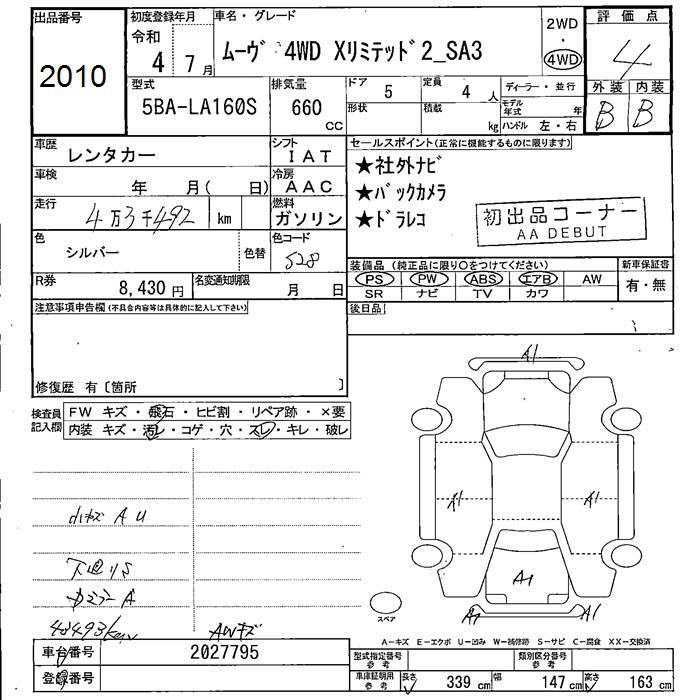 出品番号
2010
初度登録年月
令和
4 7月
車名・グレード
ムーヴ 4WD Xリミテッド2_SA3
2WD
・
4WD
評価点
4
外装 内装
B B
型式
5BA-LA160S
排気量
660
cc
ドア
5
定員
4 人
形状
積載
kg
ディーラー・並行
モデル年式 年
ハンドル 左・右
車歴
レンタカー
シフト
IAT
車検
年 月( 日)
冷房
AAC
走行
4万3千492 km
燃料
ガソリン
色
シルバー
色替
色コード
S28
R券
8,430 円
名変通知期限
月 日
セールスポイント(正常に機能するものに限ります)
★社外ナビ
★バックカメラ
★ドラレコ
初出品コーナー
AA DEBUT
装備品(純正品に限り○をつけてください)
PS PW ABS エアB AW
SR ナビ TV カワ
新車保証書
有・無
後日品
注意事項申告欄(不具合内容等は具体的に記入して下さい)
修復歴 有〔箇所 〕
検査員
記入欄
FW キズ・飛石・ヒビ割・リペア跡・×要
内装 キズ・汚レ・コゲ・穴・スレ・キレ・破レ
小キズ A U
下廻りS
A
AWキズ
A1
A1
A1
A1
A1
スペア
A-キズ E-エクボ U-凹み W-補修跡 S-サビ C-腐食 XX-交換済
車台番号
2027795
登録番号
型式指定番号
参考
類別区分番号
参考
車庫証明用
参考
長さ 339 cm 幅 147 cm 高さ 163 cm